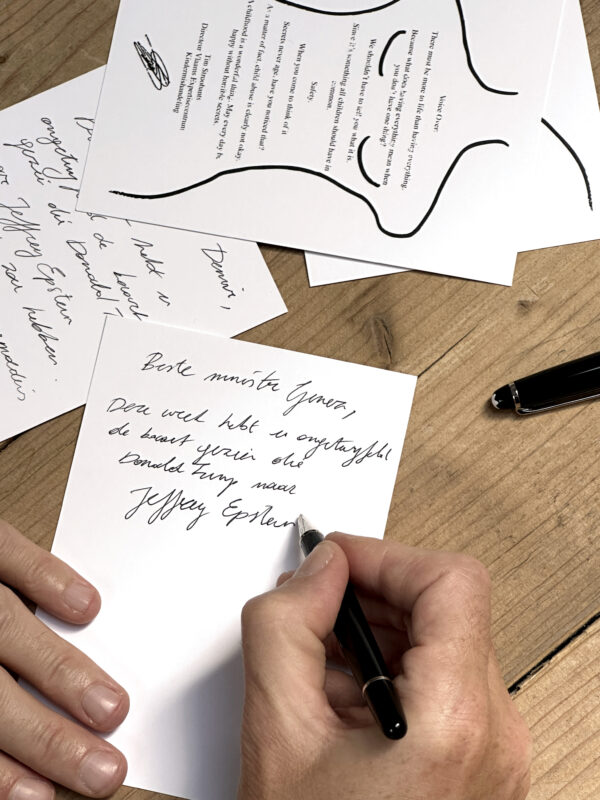 Voice Over:
There must be more to life than having everything.
Because what does having everything mean when
you don't have one thing?
We shouldn't have to tell you what it is.
Since it's something all children should have in
common.
Safety.
When you come to think of it
Secrets never age, have you noticed that?
As a matter of fact, child abuse is clearly not okay.
A childhood is a wonderful thing. May every day be
happy without horrible secrets.
Tim Stroobants
Directeur Vlaams Expertisecentrum
Kindermishandeling
hebt u
de kaart
gezien die Donald T
Jeffrey Epstein
zou hebben
Beste minister Gennez,
Deze week hebt u ongetwijfeld
de kaart gezien die
Donald Trump naar
Jeffrey Epstein